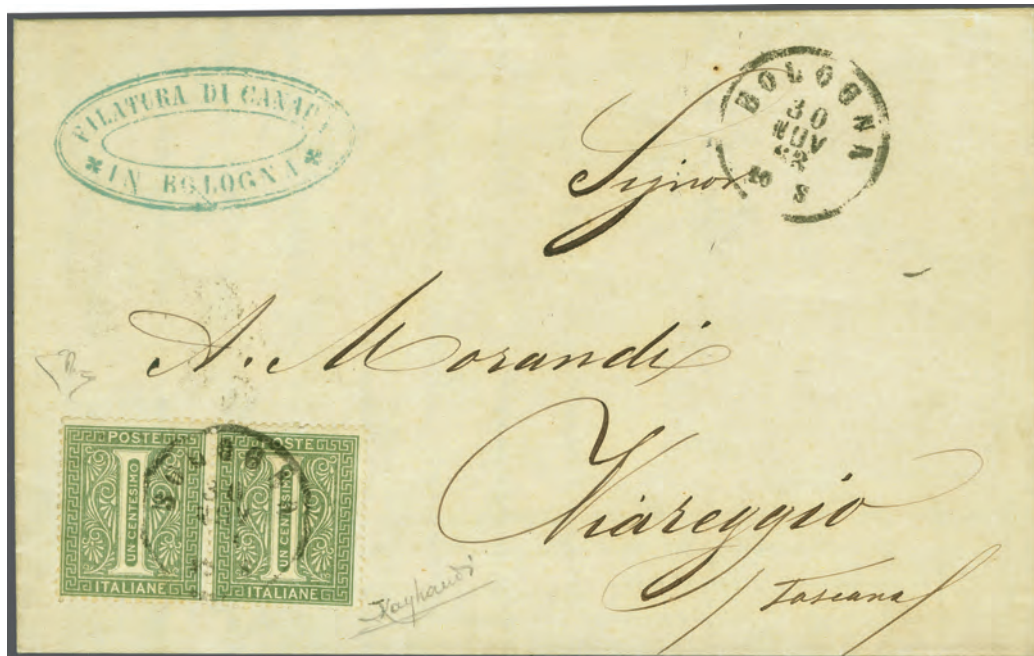 FILATURA DI CANAPA
* IN BOLOGNA *
BOLOGNA
30
NOV
10 S
Signor
A. Morandi
Viareggio
Toscana
POSTE
1
UN CENTESIMO
ITALIANE
POSTE
1
UN CENTESIMO
ITALIANE
BOLOGNA
30
NOV